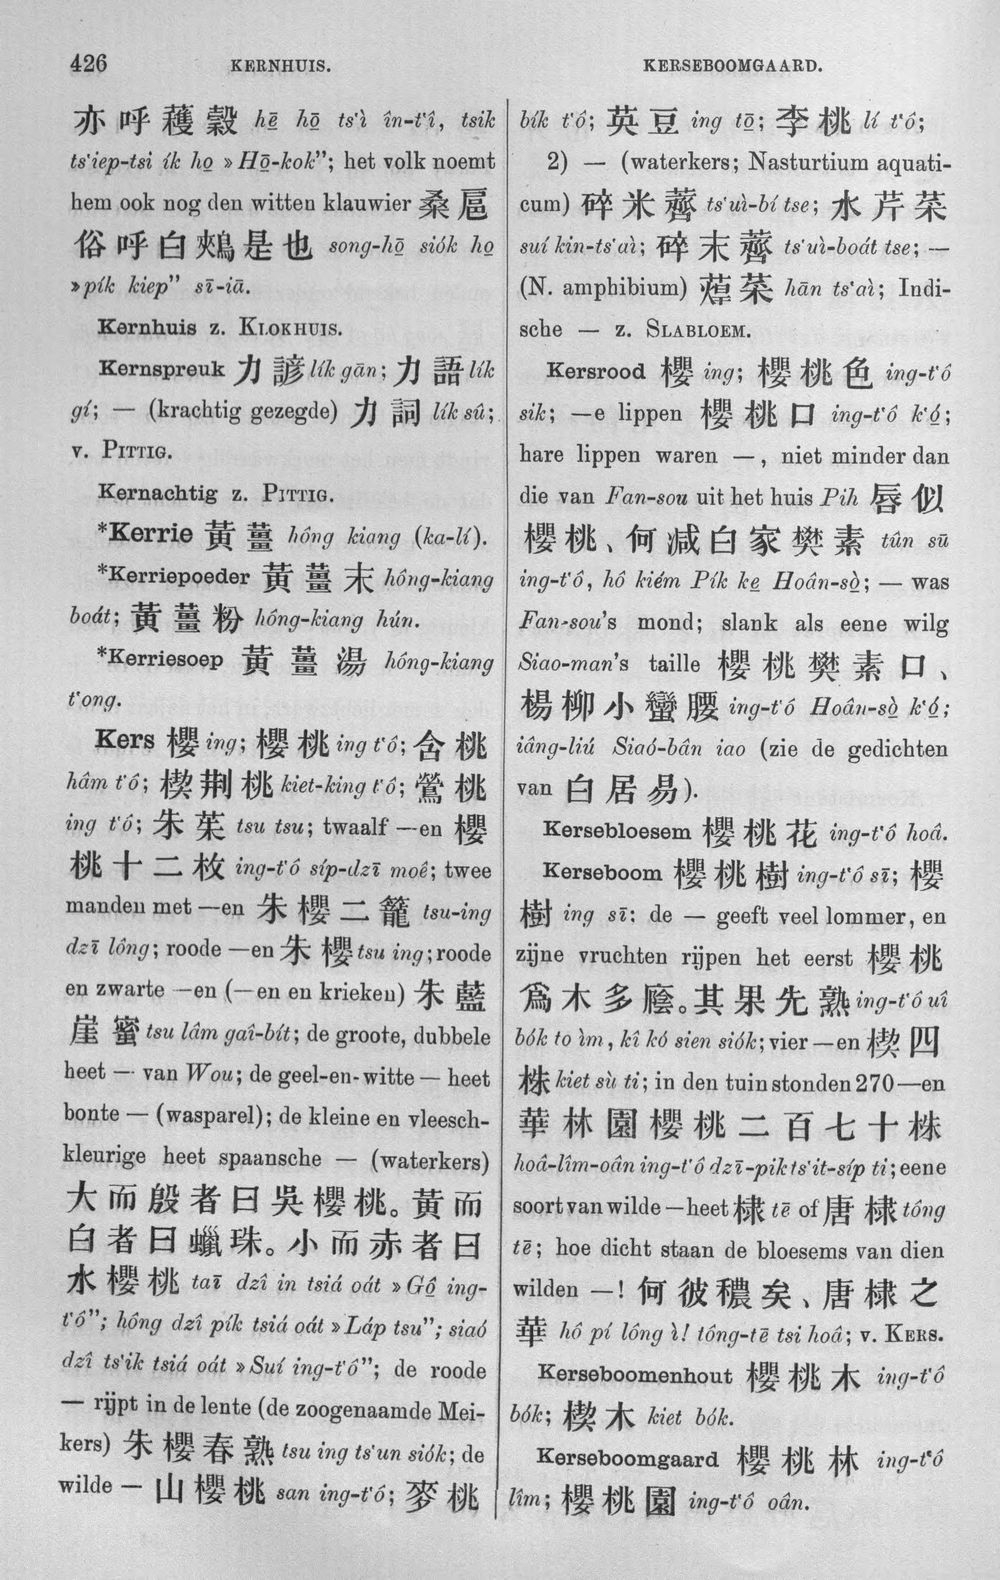 426
KERNHUIS.
KERSEBOOMGAARD.
亦呼𧂐縠 hē hō̤ ts'ì în-t'î, tsik
ts'iep-tsi ík ho̤ »Hō̤-kok”; het volk noemt
hem ook nog den witten klauwier 桑扈
俗呼白鴊是也 song-hō̤ siók ho̤
»pík kiep” sī-iā.
Kernhuis z. KLOKHUIS.
Kernspreuk 力諺 lík gān; 力語 lík
gí; — (krachtig gezegde) 力詞 lík sû;
v. PITTIG.
Kernachtig z. PITTIG.
*Kerrie 黃薑 hông kiang (ka-lí).
*Kerriepoeder 黃薑末 hông-kiang
boát; 黃薑粉 hông-kiang hún.
*Kerriesoep 黃薑湯 hông-kiang
t'ong.
Kers 櫻 ing; 櫻桃 ing t'ô; 含桃
hâm t'ô; 楔荆桃 kiet-king t'ô; 鶯桃
ing t'ô; 朱茱 tsu tsu; twaalf —en 櫻
桃十二枚 ing-t'ô síp-dzī moê; twee
manden met —en 朱櫻二籠 tsu-ing
dzī lông; roode —en 朱櫻 tsu ing; roode
en zwarte —en (—en en krieken) 朱藍
崖蜜 tsu lâm gaî-bít; de groote, dubbele
heet — van Wou; de geel-en-witte — heet
bonte — (wasparel); de kleine en vleesch-
kleurige heet spaansche — (waterkers)
大而殷者曰吳櫻桃。黃而
白者曰蠟珠。小而赤者曰
水櫻桃 taī dzî in tsiá oát »Gô̤ ing-
t'ô”; hông dzî pík tsiá oát »Láp tsu”; siaó
dzî ts'ik tsiá oát »Suí ing-t'ô”; de roode
— rijpt in de lente (de zoogenaamde Mei-
kers) 朱櫻春熟 tsu ing ts'un siók; de
wilde — 山櫻桃 san ing-t'ô; 麥桃
bík t'ô; 英豆 ing tō̤; 李桃 lí t'ô;
2) — (waterkers; Nasturtium aquati-
cum) 碎米薺 ts'uì-bí tse; 水芹菜
suí kin-ts'aì; 碎末薺 ts'uì-boát tse; —
(N. amphibium) 蔊菜 hān ts'aì; Indi-
sche — z. SLABLOEM.
Kersrood 櫻 ing; 櫻桃色 ing-t'ô
sik; —e lippen 櫻桃口 ing-t'ô k'ó̤;
hare lippen waren —, niet minder dan
die van Fan-sou uit het huis Pih 唇似
櫻桃、何減白家樊素 tûn sū
ing-t'ô, hô kiém Pík ke̤ Hoân-sò̤; — was
Fan-sou's mond; slank als eene wilg
Siao-man's taille 櫻桃樊素口、
楊柳小蠻腰 ing-t'ô Hoân-sò̤ k'ó̤;
iâng-liú Siaó-bân iao (zie de gedichten
van 白居易).
Kersebloesem 櫻桃花 ing-t'ô hoâ.
Kerseboom 櫻桃樹 ing-t'ô sī; 櫻
樹 ing sī: de — geeft veel lommer, en
zijne vruchten rijpen het eerst 櫻桃
爲木多廕。其果先熟 ing-t'ô uî
bók to ìm, kî kó sien siók; vier —en 楔四
株 kiet sù ti; in den tuin stonden 270 —en
華林園櫻桃二百七十株
hoâ-lîm-oân ing-t'ô dzī-pik ts'it-síp ti; eene
soort van wilde — heet 棣 tē of 唐棣 tông
tē; hoe dicht staan de bloesems van dien
wilden —! 何彼穠矣、唐棣之
華 hô pí lông ì! tông-tē tsi hoâ; v. KERS.
Kerseboomenhout 櫻桃木 ing-t'ô
bók; 楔木 kiet bók.
Kerseboomgaard 櫻桃林 ing-t'ô
lîm; 櫻桃園 ing-t'ô oân.